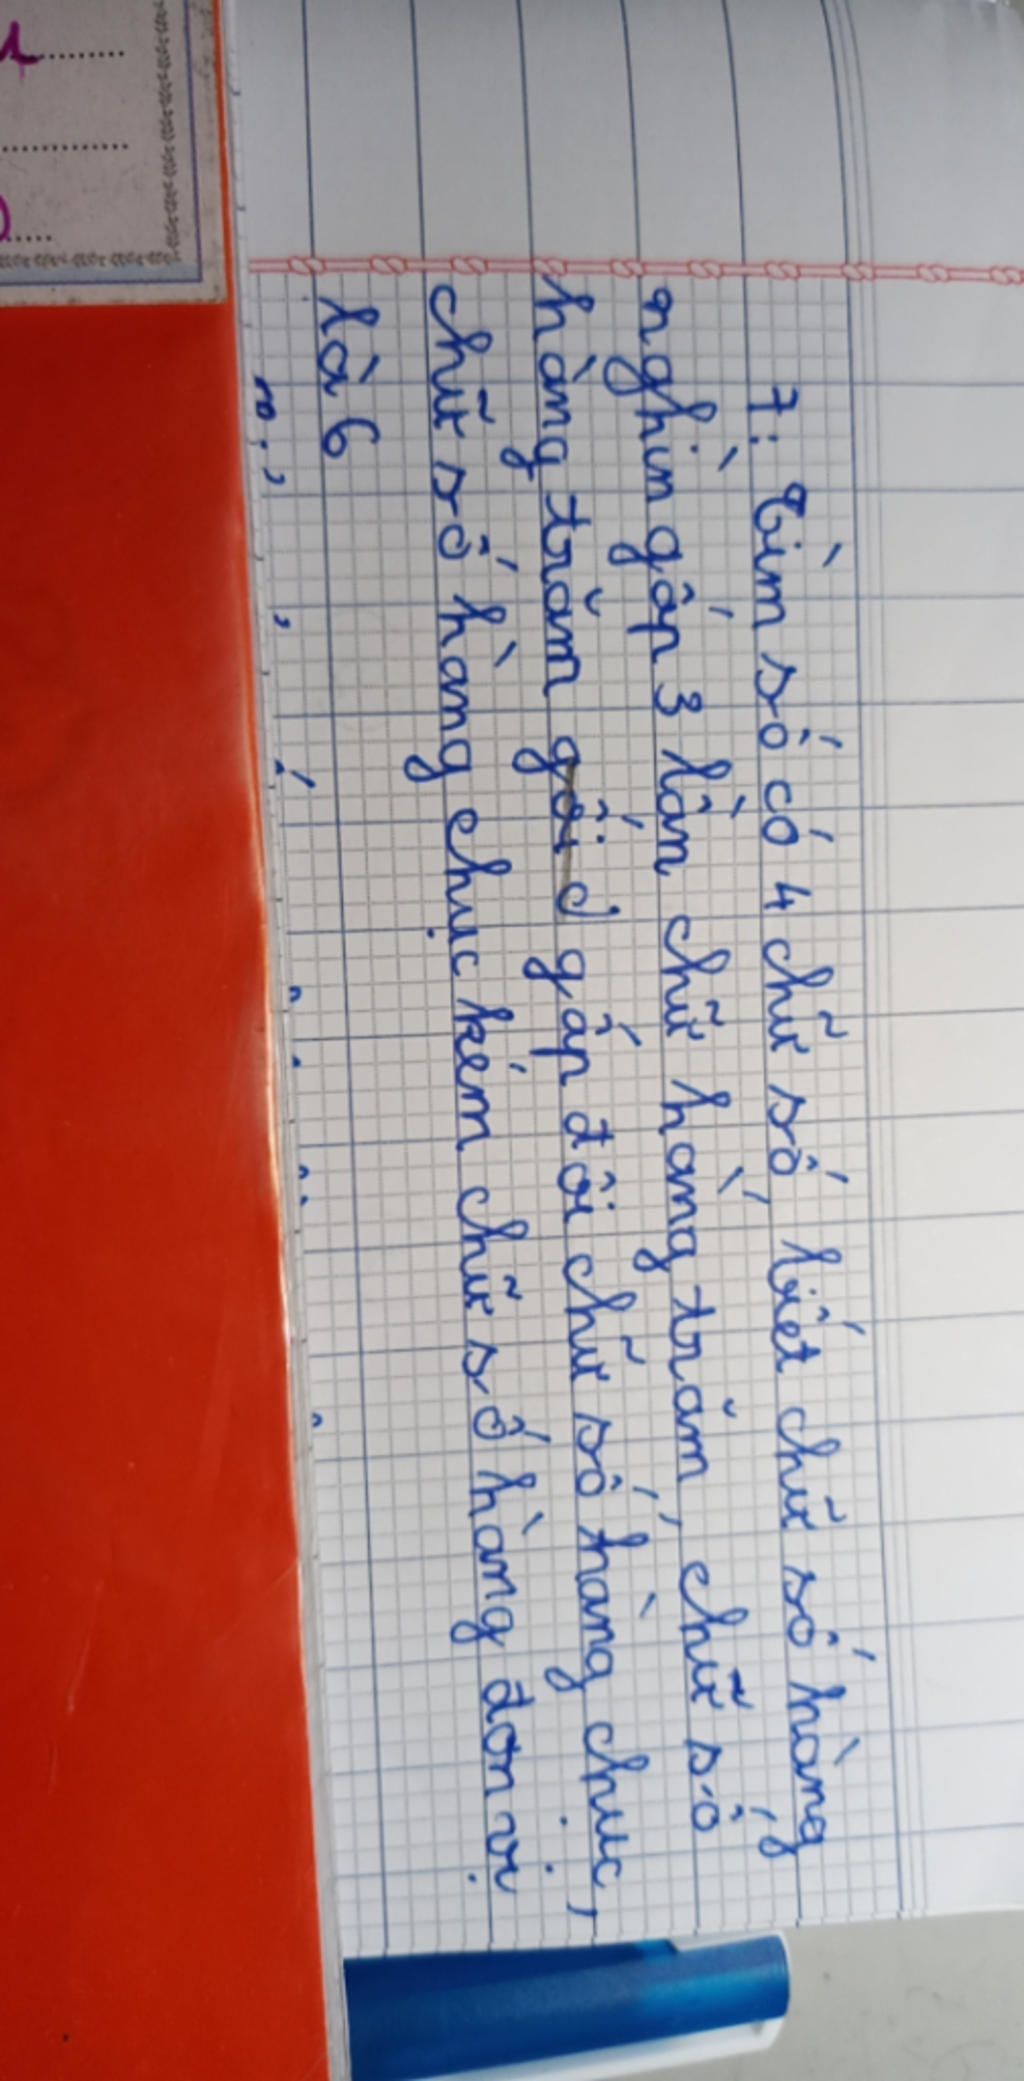 7: Tìm số có 4 chữ số, biết chữ số hàng
nghìn gấp 3 lần chữ hàng trăm, chữ số
hàng trăm gấp đôi chữ số hàng chục,
chữ số hàng chục kém chữ số hàng đơn vị
là 6